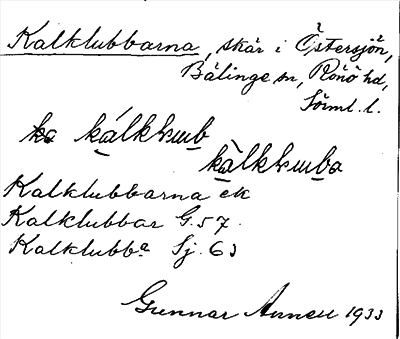 Kalklubbarna, skär i Östersjön,
Bälinge sn, Rönö hd,
Sörml. l.
kálkklub
kàlkkluba
Kalklubbarna ek
Kalklubbar G. 57.
Kalklubb. Sj. 63
Gunnar 1933